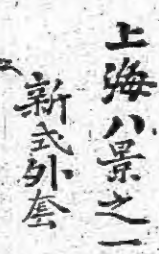 上海八景之一
新式外套